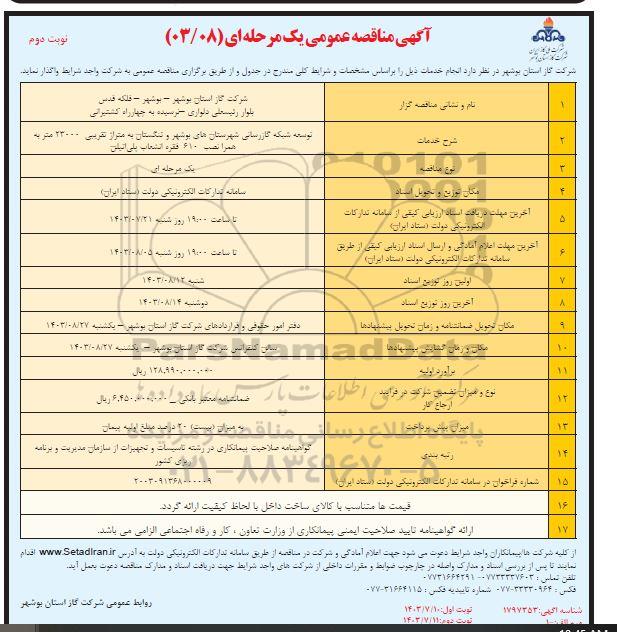 آگهی مناقصه عمومی یک مرحله‌ای (۰۳/۰۸)
نوبت دوم
شرکت ملی گاز ایران
شرکت گاز استان بوشهر
شرکت گاز استان بوشهر در نظر دارد انجام خدمات ذیل را براساس مشخصات و شرایط کلی مندرج در جدول و از طریق برگزاری مناقصه عمومی به شرکت واجد شرایط واگذار نماید.
۱ نام و نشانی مناقصه گزار شرکت گاز استان بوشهر – بوشهر – فلکه قدس
بلوار رئیسعلی دلواری –نرسیده به چهارراه کشتیرانی
۲ شرح خدمات توسعه شبکه گازرسانی شهرستان های بوشهر و تنگستان به متراژ تقریبی ۲۳۰۰۰ متر به
همرا نصب ۶۱۰ فقره انشعاب پلی‌اتیلن
۳ نوع مناقصه یک مرحله ای
۴ مکان توزیع و تحویل اسناد سامانه تدارکات الکترونیکی دولت (ستاد ایران)
۵ آخرین مهلت دریافت اسناد ارزیابی کیفی از سامانه تدارکات
الکترونیکی دولت (ستاد ایران) تا ساعت ۱۹:۰۰ روز شنبه ۱۴۰۳/۰۷/۲۱
۶ آخرین مهلت اعلام آمادگی و ارسال اسناد ارزیابی کیفی از طریق
سامانه تدارکات الکترونیکی دولت (ستاد ایران) تا ساعت ۱۹:۰۰ روز شنبه ۱۴۰۳/۰۸/۰۵
۷ اولین روز توزیع اسناد شنبه ۱۴۰۳/۰۸/۱۲
۸ آخرین روز توزیع اسناد دوشنبه ۱۴۰۳/۰۸/۱۴
۹ مکان تحویل ضمانتنامه و زمان تحویل پیشنهادها دفتر امور حقوقی و قراردادهای شرکت گاز استان بوشهر – یکشنبه ۱۴۰۳/۰۸/۲۷
۱۰ مکان و زمان گشایش پیشنهادها سالن کنفرانس شرکت گاز استان بوشهر – یکشنبه ۱۴۰۳/۰۸/۲۷
۱۱ برآورد اولیه ۱۲۸,۹۹۰,۰۰۰,۰۰۰ ریال
۱۲ نوع و میزان تضمین شرکت در فرآیند
ارجاع کار ضمانتنامه معتبر بانکی – ۶,۴۵۰,۰۰۰,۰۰۰ ریال
۱۳ میزان پیش پرداخت به میزان (بیست) ۲۰ درصد مبلغ اولیه پیمان
۱۴ رتبه بندی گواهینامه صلاحیت پیمانکاری در رشته تاسیسات و تجهیزات از سازمان مدیریت و برنامه
ریزی کشور
۱۵ شماره فراخوان در سامانه تدارکات الکترونیکی دولت (ستاد ایران) ۲۰۰۳۰۹۱۳۶۸۰۰۰۰۰۹
۱۶ قیمت ها متناسب با کالای ساخت داخل با لحاظ کیفیت ارائه گردد.
۱۷ ارائه گواهینامه تایید صلاحیت ایمنی پیمانکاری از وزارت تعاون ، کار و رفاه اجتماعی الزامی می باشد.
از کلیه شرکت ها/پیمانکاران واجد شرایط دعوت می شود جهت اعلام آمادگی و شرکت در مناقصه از طریق سامانه تدارکات الکترونیکی دولت به آدرس www.SetadIran.ir اقدام
نمایند تا پس از بررسی اسناد و مدارک واصله در چارجوب ضوابط و مقررات داخلی از شرکت های واجد شرایط جهت دریافت اسناد و مدارک مناقصه دعوت بعمل آید.
تلفن تماس : ۰۷۷۳۳۳۳۷۶۰۳ – ۰۷۷۳۱۶۶۴۲۹۱
فکس : ۰۷۷-۳۳۳۳۰۹۶۴ شماره تاییدیه فکس : ۰۷۷-۳۱۶۶۴۱۱۵
روابط عمومی شرکت گاز استان بوشهر
شناسه آگهی: ۱۷۹۷۳۵۳ نوبت اول: ۱۴۰۳/۷/۱۰
نوبت دوم: ۱۴۰۳/۷/۱۱
ParsNamadData
پایگاه اطلاع رسانی مناقصه و مزایده
۰۲۱-۸۸۳۴۹۶۷۰-۵